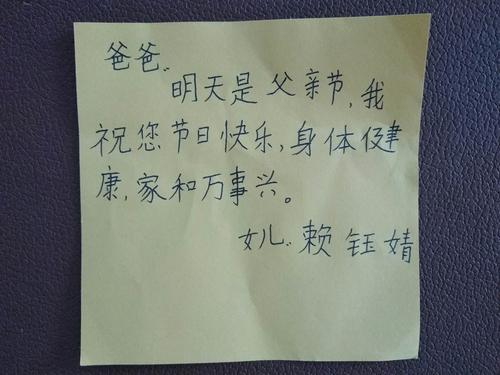 爸爸：
明天是父亲节，我
祝您节日快乐，身体健
康，家和万事兴。
女儿：赖钰婧